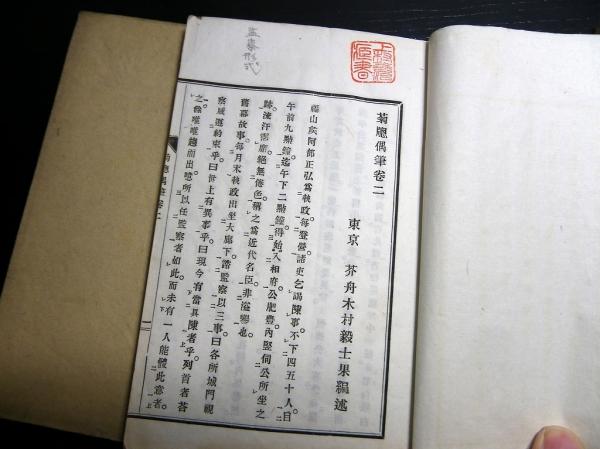 菊牕偶筆卷二
東京 芥舟木村毅士果編述
福山矦阿部正弘爲執政每登營諸吏乞謁陳事不下四五十人自
午前九點鐘迄午下二點鐘得始入相府公肥
內竪伺公所坐之
跡流汗
絕無倦色稱之爲近代名臣非溢
也
舊幕故事每月末執政出坐大廊下諮監察以三事曰各所城門視
察威
約束乎曰世上有異事乎曰現今有當具陳者乎列首者荅
之
唯唯趨而出
所以任監察者如此而未有一人能體此意者
菊牕偶筆卷二